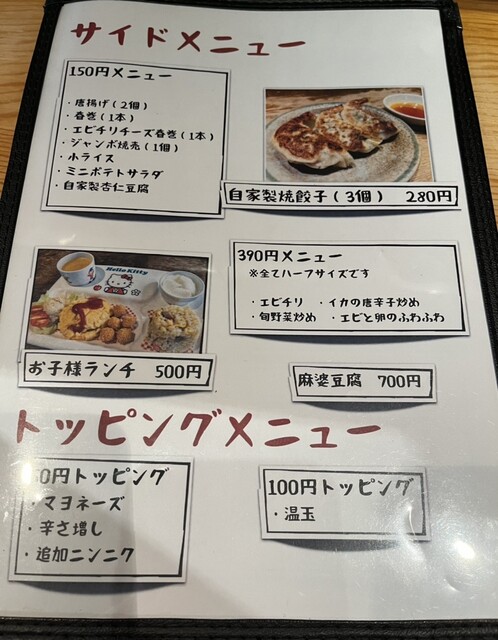 サイドメニュー
150円メニュー
・唐揚げ(2個)
・春巻(1本)
・エビチリチーズ春巻(1本)
・ジャンボ焼売(1個)
・小ライス
・ミニポテトサラダ
・自家製杏仁豆腐
自家製焼餃子(3個) 280円
390円メニュー
※全てハーフサイズです
・エビチリ ・イカの唐辛子炒め
・旬野菜炒め ・エビと卵のふわふわ
Hello Kitty
お子様ランチ 500円
麻婆豆腐 700円
トッピングメニュー
0円トッピング
・マヨネーズ
・辛さ増し
・追加ニンニク
100円トッピング
・温玉